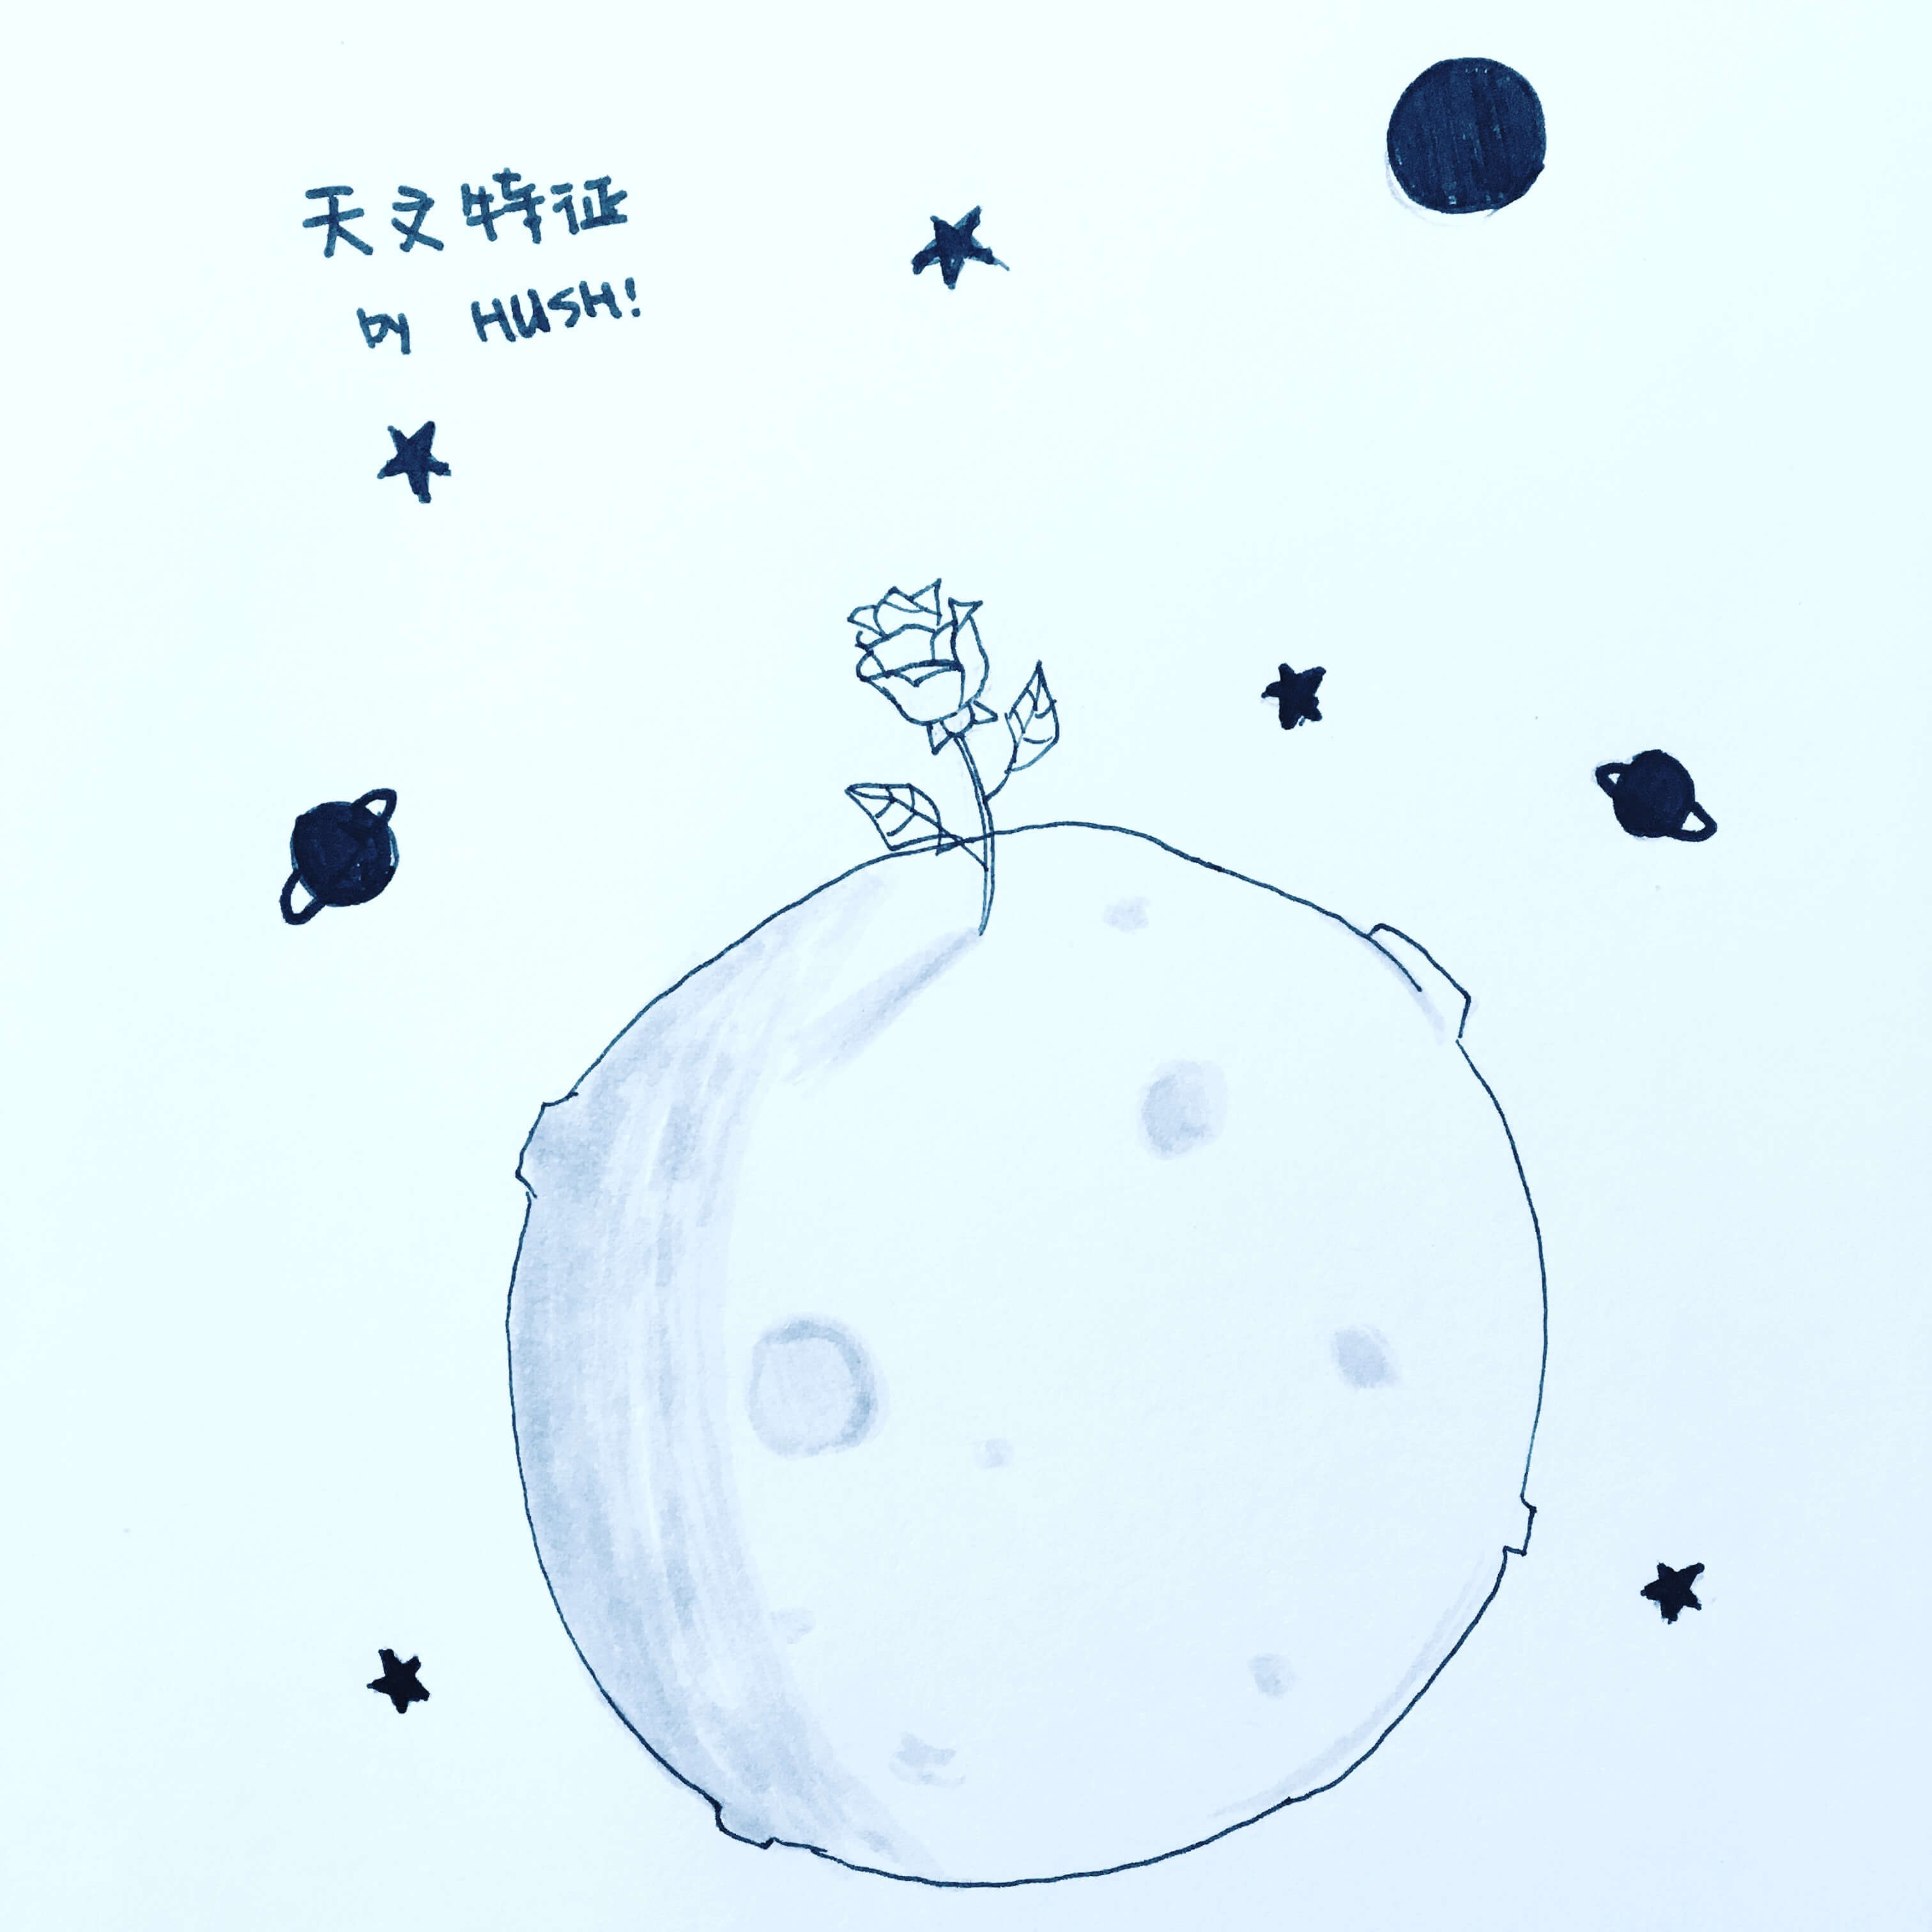 天文特征
by HUSH!